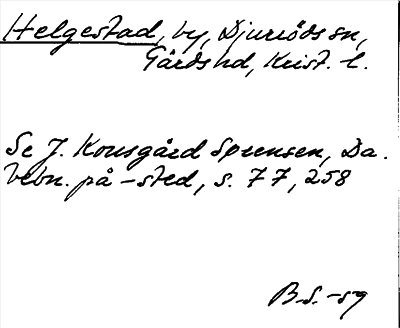 Helgestad, by, Djurröds sn,
Gärds hd, Krist. l.
Se J. Kousgård Sørensen, Da.
bebn. på -sted, s. 77, 258
B.S. -59